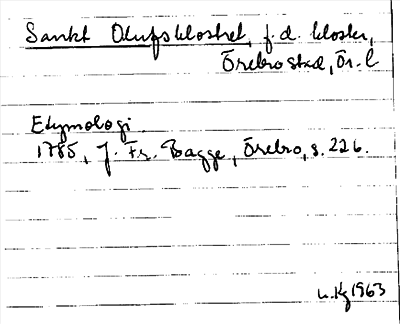 Sankt Olufsklostret, f.d. kloster,
Örebro stad, Ör. l
Etymologi.
1785, J. Fr. Bagge, Örebro, s. 226.
1963